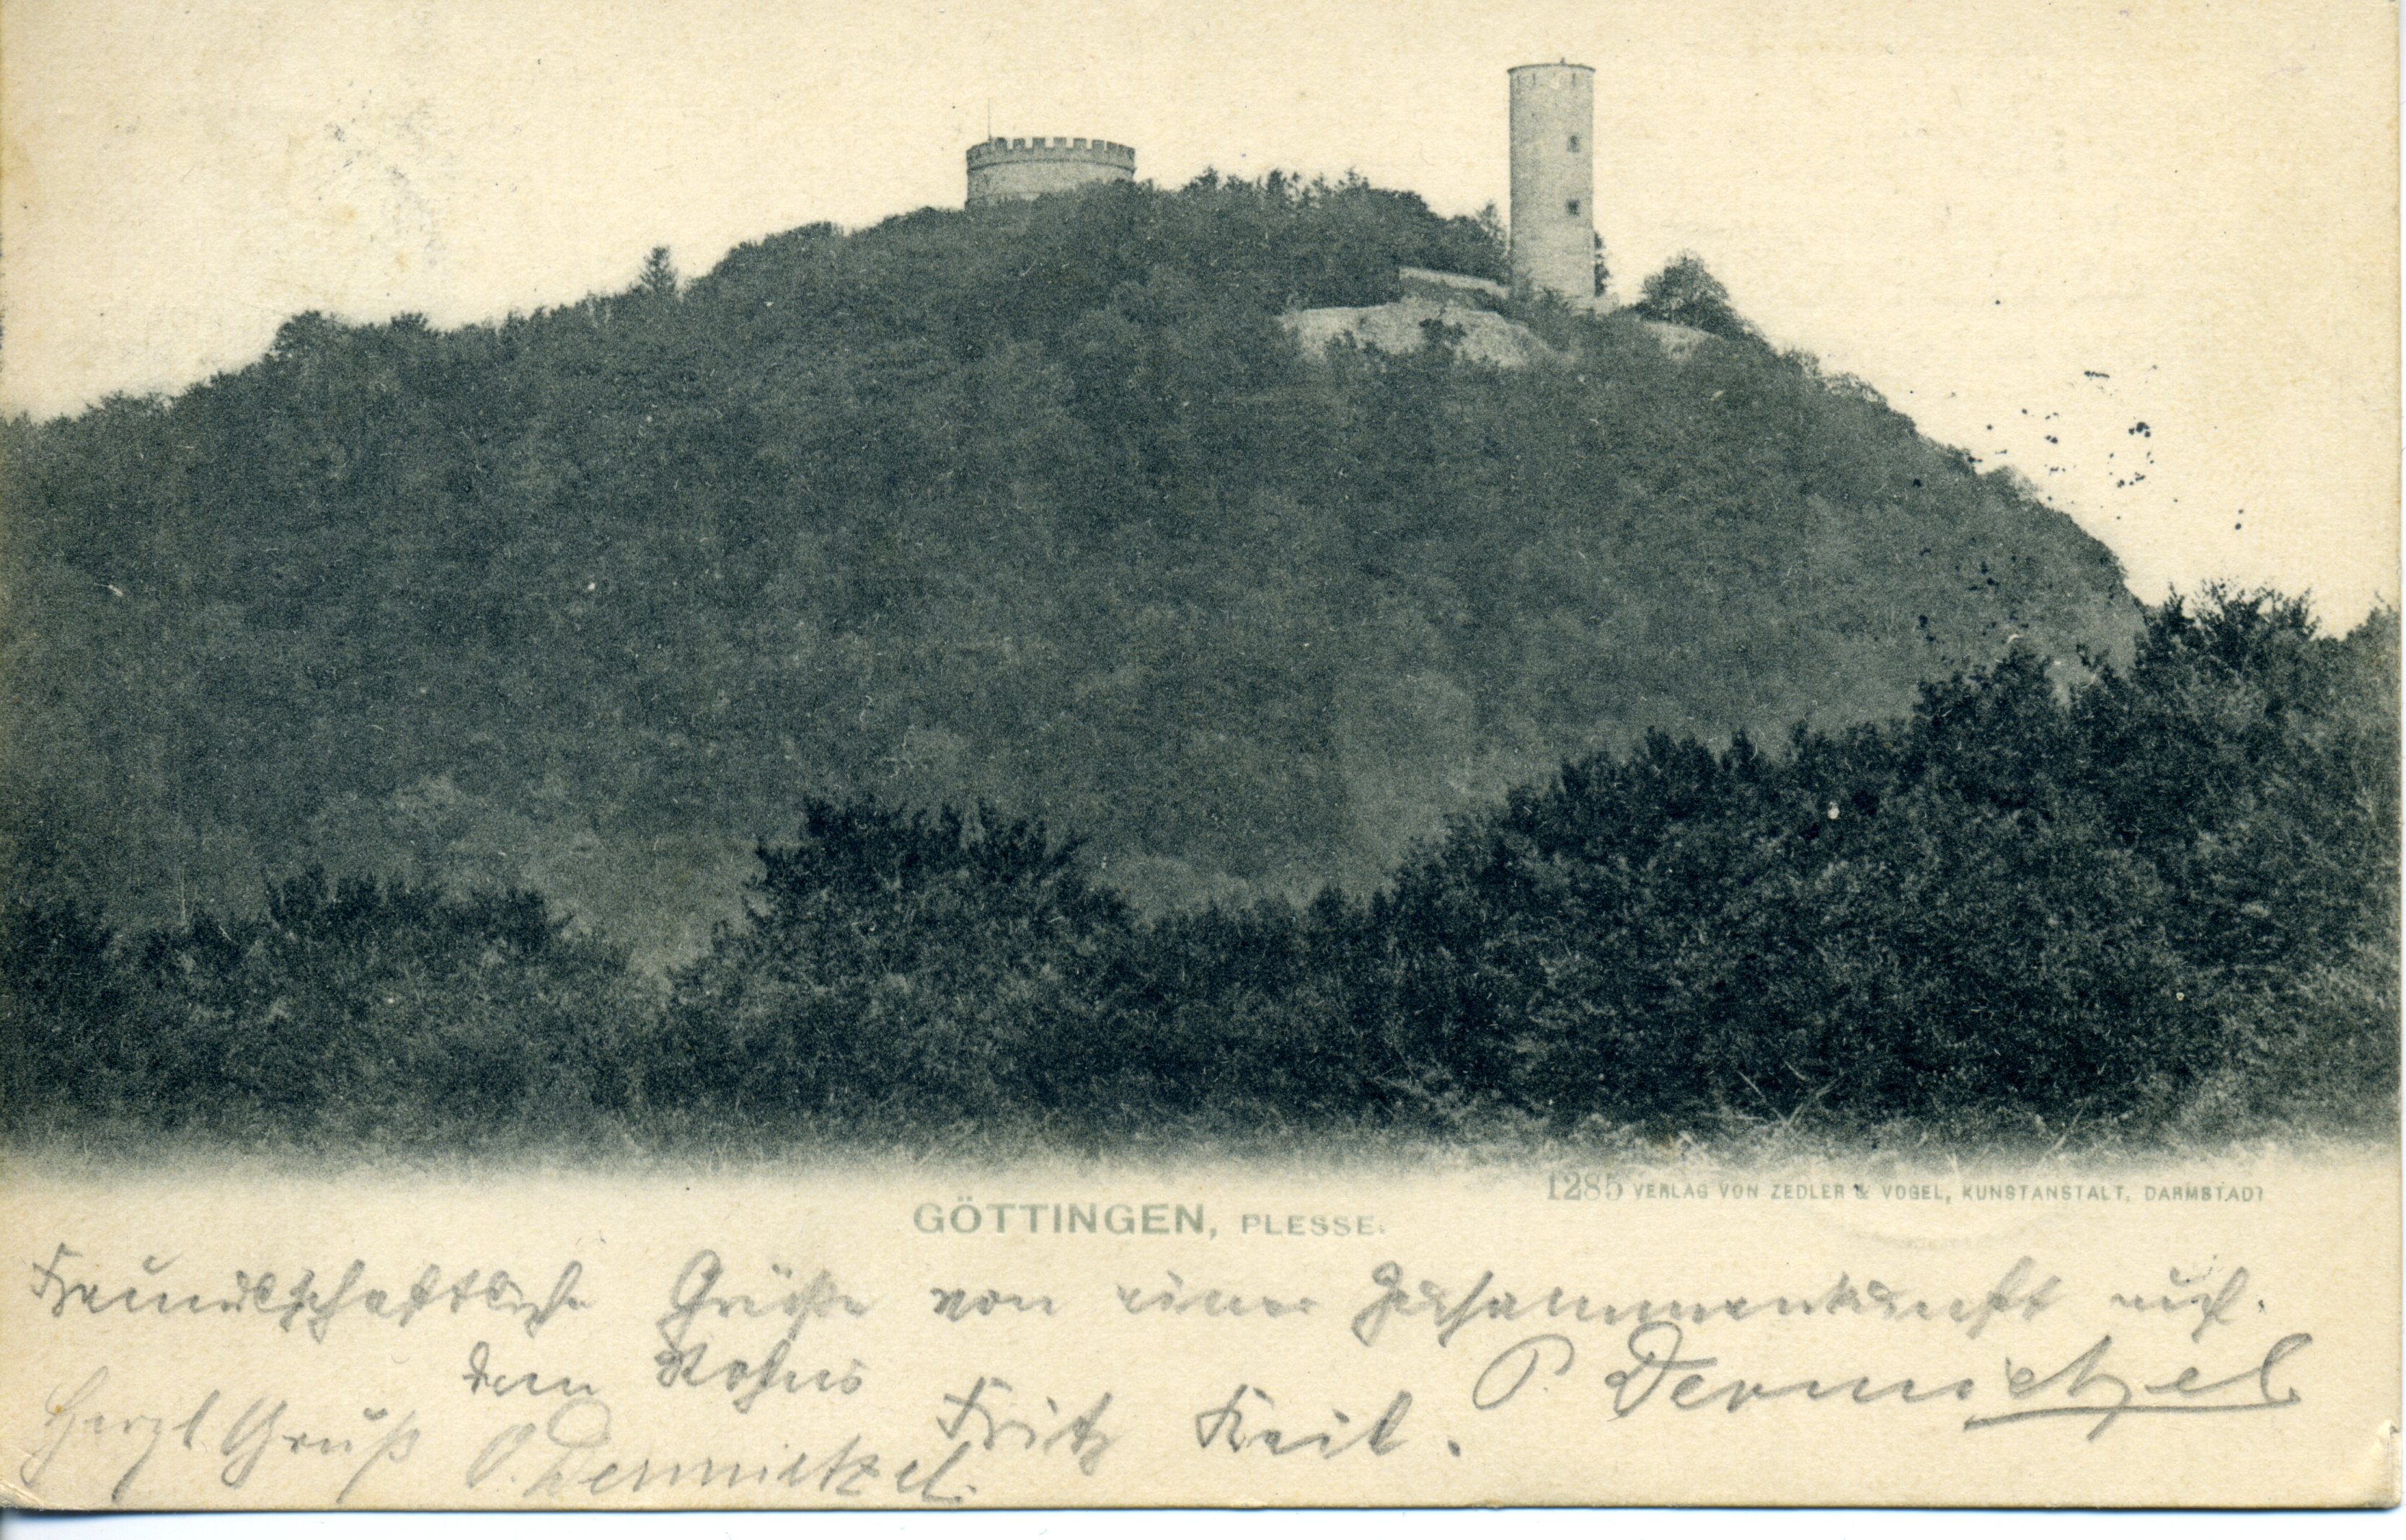 1285 VERLAG VON ZEDLER & VOGEL, KUNSTANSTALT, DARMSTADT
GÖTTINGEN, PLESSE.
Freundschaftliche Grüße von einer Zusammenkunft auf
dem Rohns
P. Dermietzel
Fritz Keil.
Herzl Gruß O. Dermietzel.